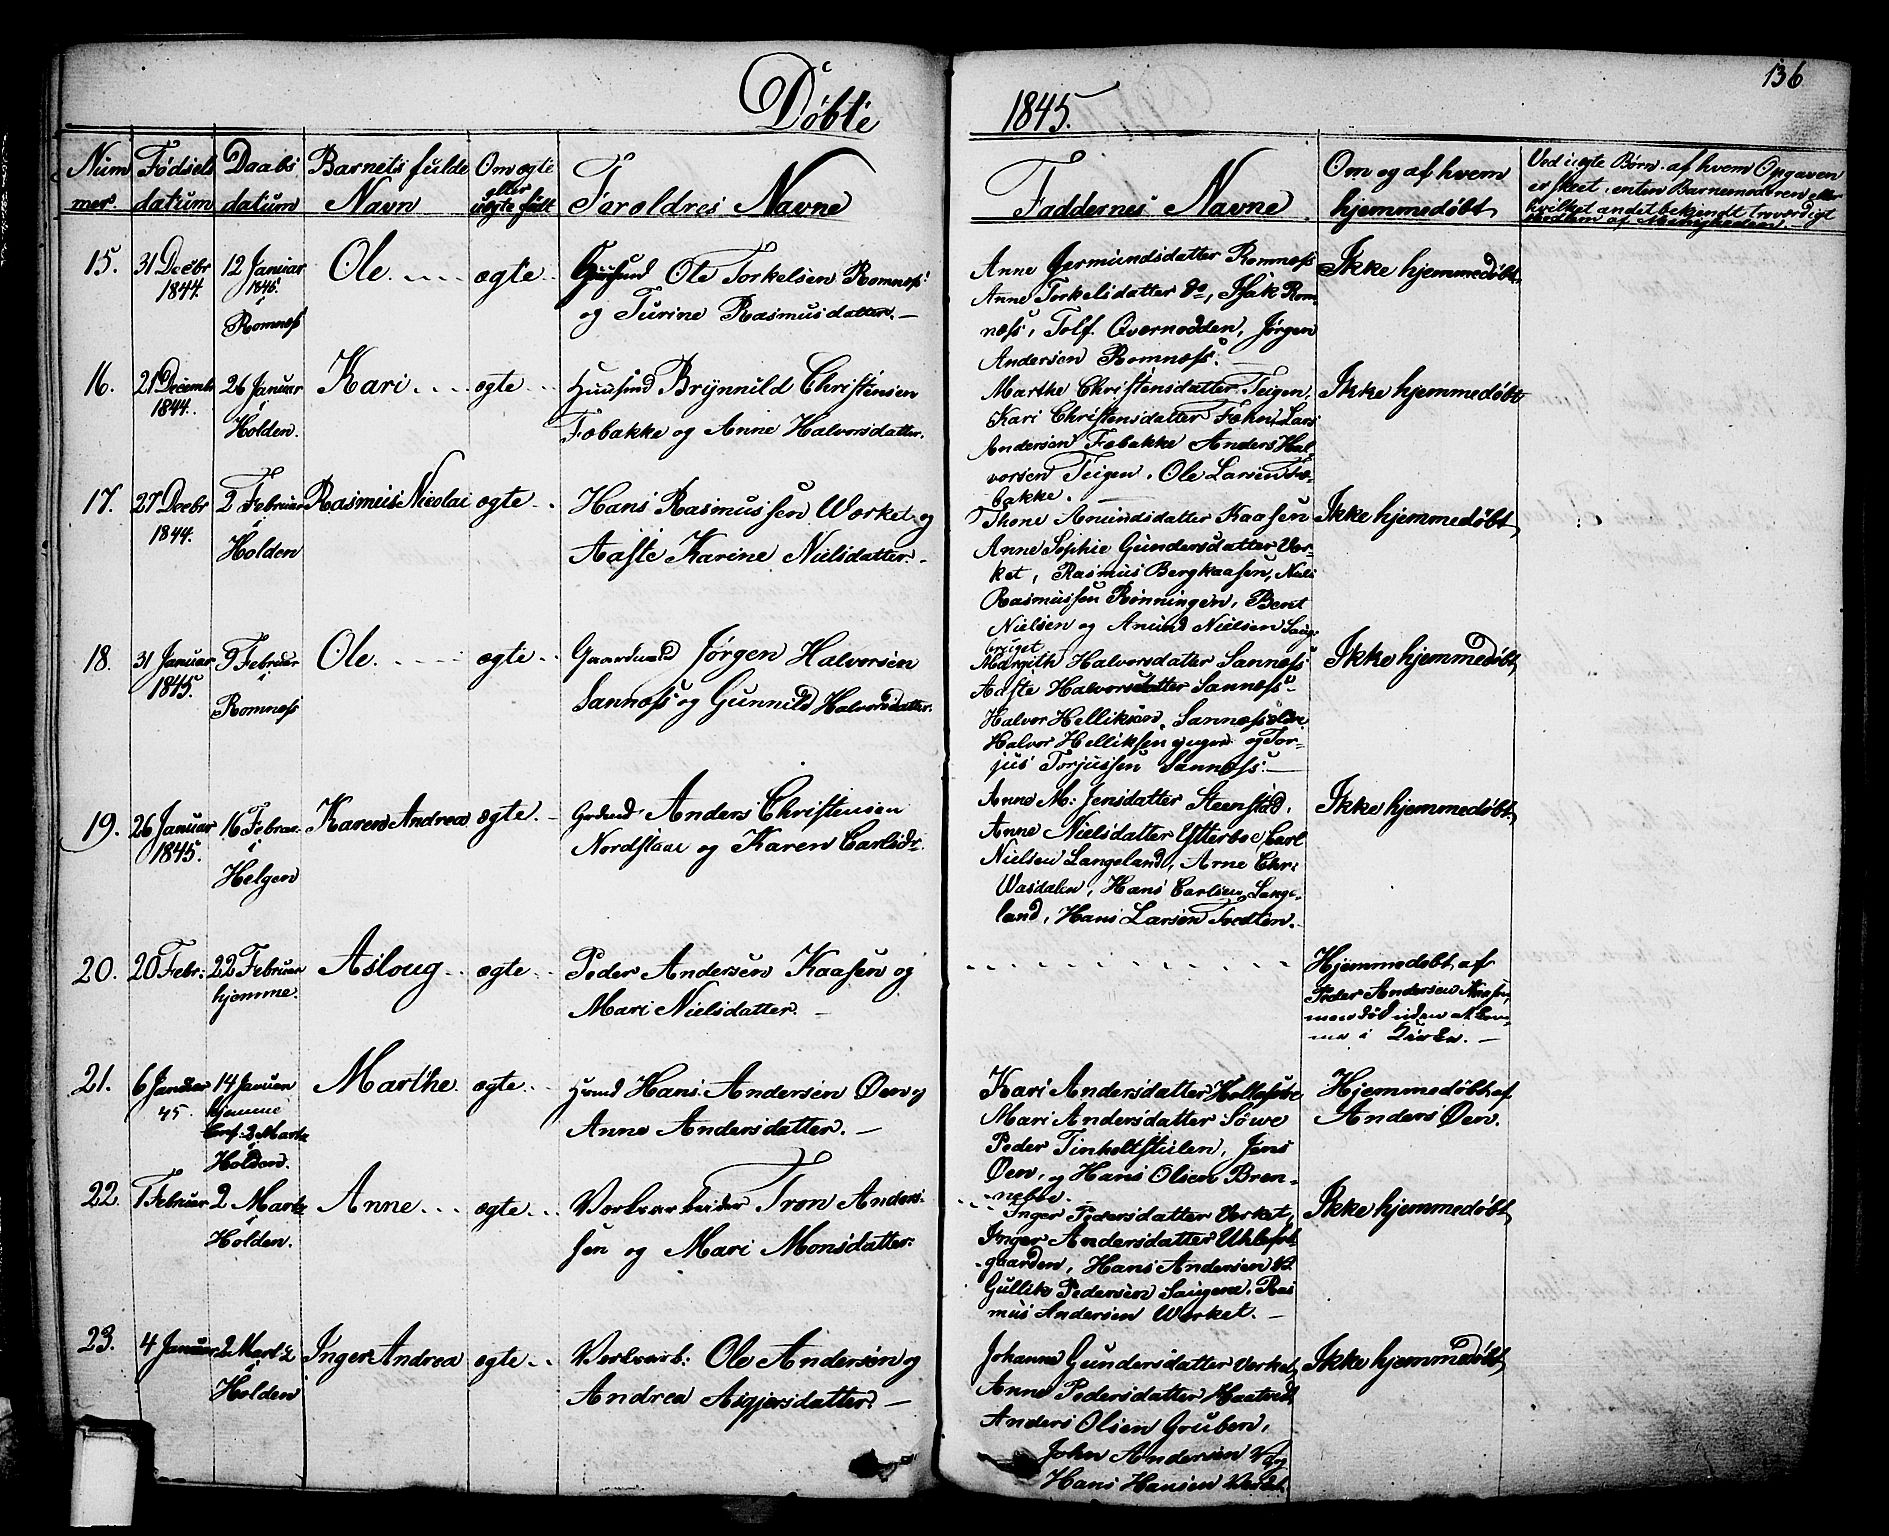 136
Døbte 1845.
Num
mer.
Fødsels
datum
Daabs
datum
Barnets fulde
Navn
Om ægte
eller
uægte født
Foroldres Navne
Faddernes Navne
Om og af hvem
hjemmedøbt
Ved uægte Børn af hvem Opgaven
er skeet, enten Barnemoderen eller
hvilket andet bekjendt troværdigt
Medlem af Menigheden.
15.
31 Decbr
1844.
12 Januar
1845.
i
Romnæss
Ole
ægte
Huusmd Ole Torkelsen Romnæss
og Turine Rasmusdatter.
Anne Germundsdatter Romnæss
Anne Torkelsdatter do, Isak Rom-
næss, Tolf. Overnodden, Jørgen
Andersen Romnæss.
Ikke hjemmedøbt
16.
21 Decembr
1844.
26 Januar
i
Holden.
Kari
ægte
Huusmd Brynnild Christensen
Fæbakke og Anne Halvorsdatter.
Marthe Christensdatter Teigen,
Kari Christensdatter Fæhn, Lars
Andersen Fæbakke Anders Hal-
vorsen Teigen, Ole Larsen Fæ-
bakke.
Ikke hjemmedøbt
17.
27 Decbr
1844.
2 Februar
i
Holden
Rasmus Nicolai
ægte
Hans Rasmussen Wærket og
Aaste Karine Nielsdatter.
Thone Amundsdatter Kaasen
Anne Sophie Gundersdatter Ver-
ket, Rasmus Bergkaasen, Niels
Rasmussen Rønningen, Bent
Nielsen og Amund Nielsen Saug-
bruget
Ikke hjemmedøbt
18.
31 Januar
1845.
9 Februar
i
Romnæss
Ole
ægte
Gaardmd Jørgen Halvorsen
Sannæss og Gunnild Halvorsdatter.
Margith Halvorsdatter Sannæss
Aaste Halvorsdatter Sannæss
Halvor Helliksen Sannæss eldre
Halvor Helliksen yngre og Tor-
jus Torjussen Sannæss.
Ikke hjemmedøbt
19.
26 Januar
1845.
16 Februar
i
Helgen
Karen Andrea
ægte
Grdmd Anders Christensen
Nordstaae og Karen Carlsdr.
Anne M: Jensdatter Steenstad,
Anne Nielsdatter Efterboe, Carl
Nielsen Langeland, Arne Chr:
Wasdalen, Hans Carlsen Lange-
land, Hans Larsen Tvedten.
Ikke hjemmedøbt
20.
20 Febr:
22 Februar
hjemme.
Asloug
ægte
Peder Andersen Kaasen og
Mari Nielsdatter.
Hjemmedøbt af
Peder Andersen Kaasen,
men død uden at kom-
me i Kirken.
21.
6 Januar
45.
14 Januar
hjemme
Conf. 2 Marts
i
Holden.
Marthe
ægte
Hmd Hans Andersen Øen og
Anne Andersdatter.
Kari Andersdatter
Mari Andersdatter Søwe
Peder Tinholtstulen, Jens
Øen, og Hans Olsen Bren-
neboe.
Hjemmedøbt af
Anders Øen.
22.
1 Februar
2 Marts
i
Holden.
Anne
ægte
Verksarbeider Tron Anders-
sen og Mari Monsdatter.
Inger Pedersdatter Verket,
Inger Andersdatter Uhlefos-
gaarden, Hans Andersen V.
Gullik Pedersen Saugene, Ras
mus Andersen Werket.
Ikke hjemmedøbt
23.
4 Januar
2 Marts
i
Holden
Inger Andrea
ægte
Verksarb: Ole Andersen og
Andrea Asgjersdatter.
Johanne Gundersdatter Verket,
Anne Pedersdatter Maatvedt
Anders Olsen Gruben,
John Andersen V og
Hans Hansen Verket.
Ikke hjemmedøbt